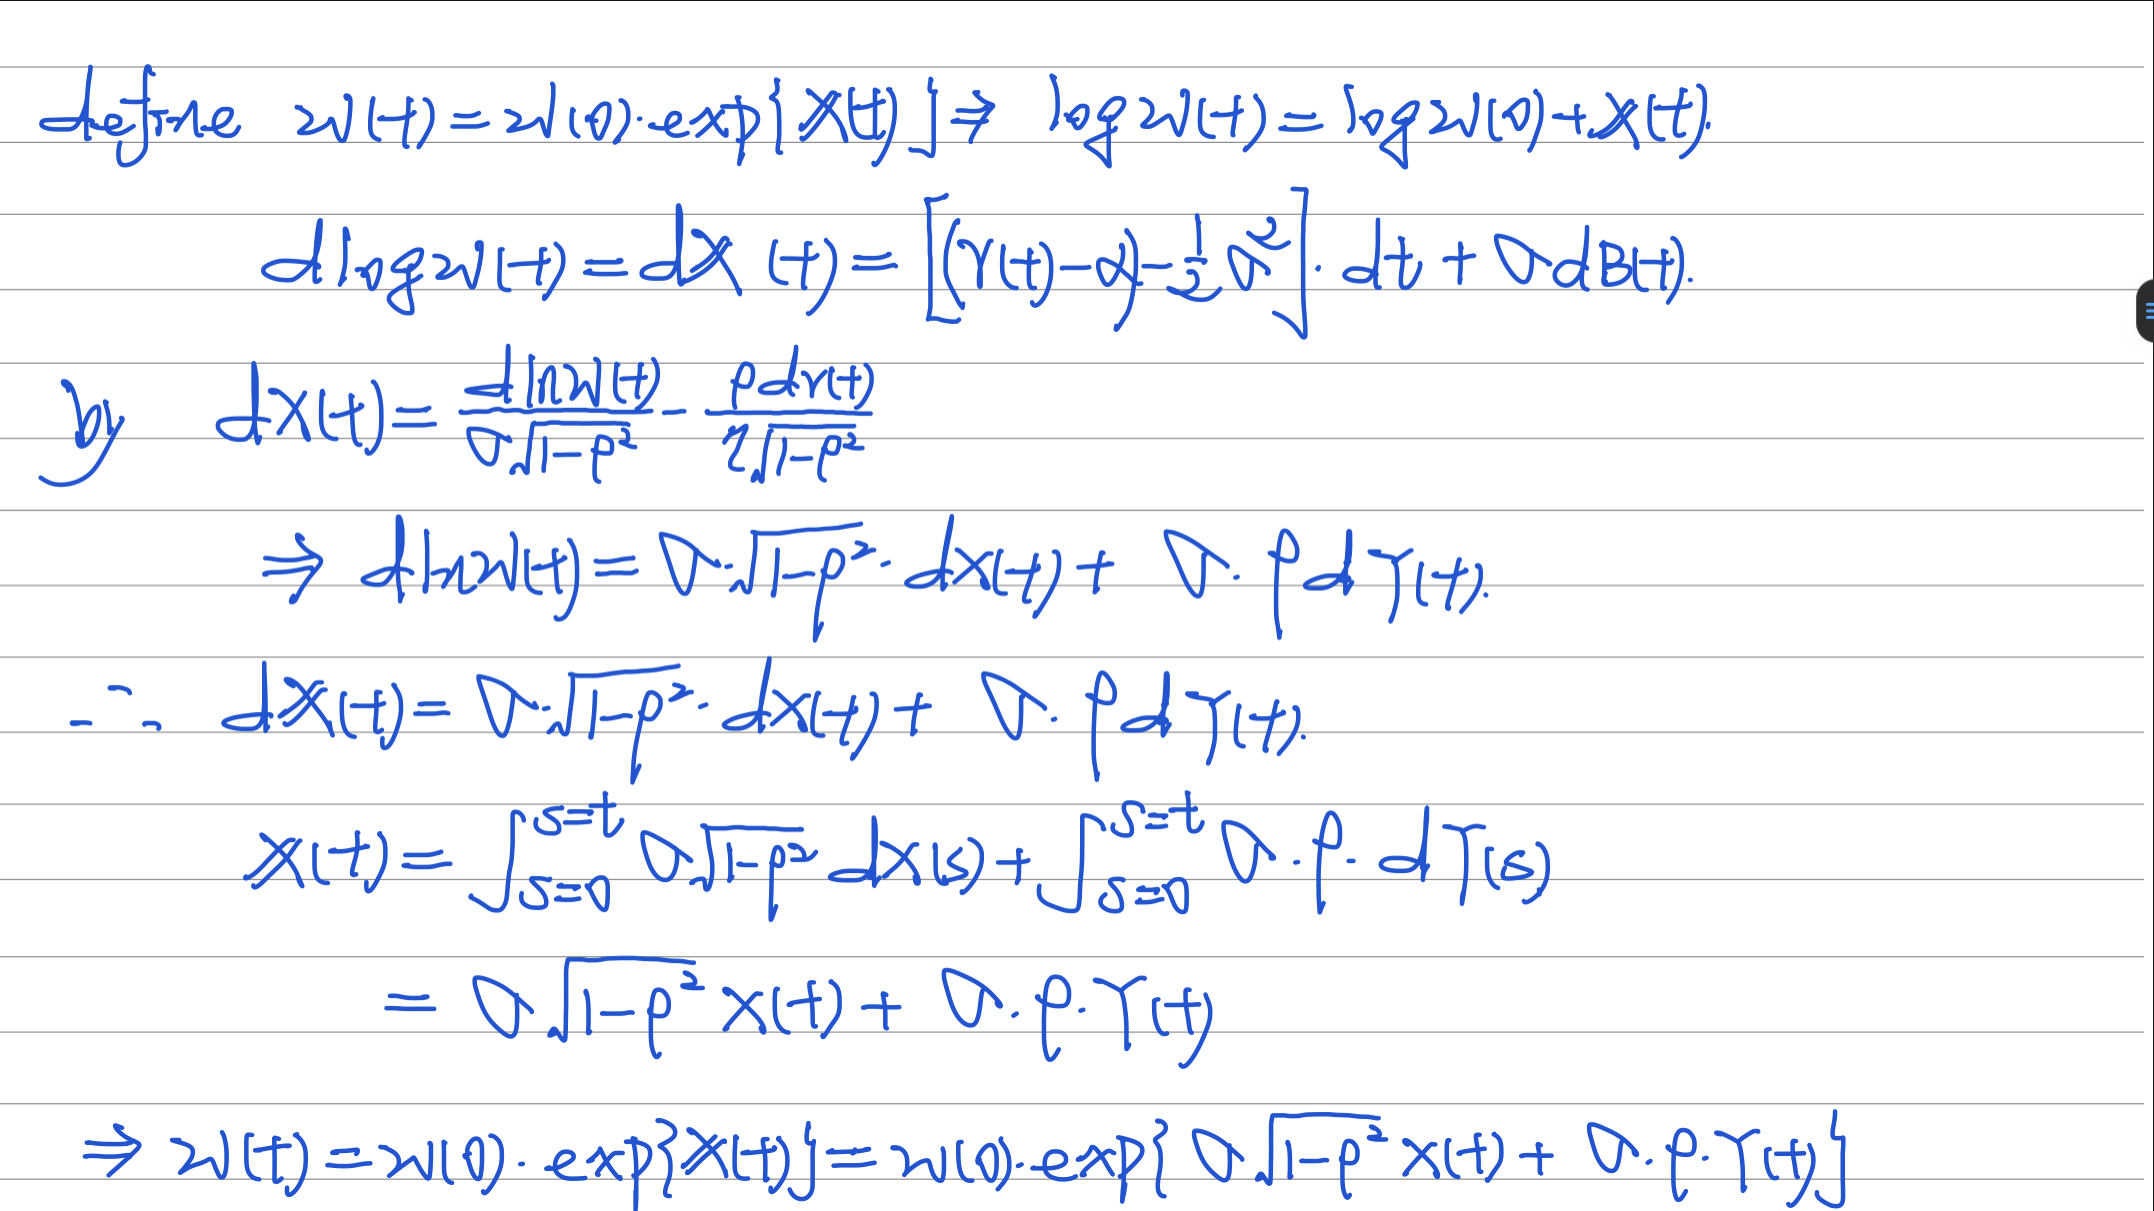 define W(t)=W(0)·exp{𝕏(t)} ⇒ log W(t)=log W(0)+𝕏(t).
d log W(t)=d𝕏(t)=[(r(t)-α)-½σ²]·dt+σdB(t).
by dX(t)= dlnW(t)/(σ√(1-ρ²)) - ρdr(t)/(η√(1-ρ²))
⇒ dlnW(t)=σ·√(1-ρ²)·dX(t)+σ·ρdY(t).
∴ d𝕏(t)=σ·√(1-ρ²)·dX(t)+σ·ρdY(t).
𝕏(t)=∫_{s=0}^{s=t} σ√(1-ρ²) dX(s)+∫_{s=0}^{s=t} σ·ρ·dY(s)
=σ√(1-ρ²) X(t)+σ·ρ·Y(t)
⇒ W(t)=W(0)·exp{𝕏(t)}=W(0)·exp{σ√(1-ρ²) X(t)+σ·ρ·Y(t)}